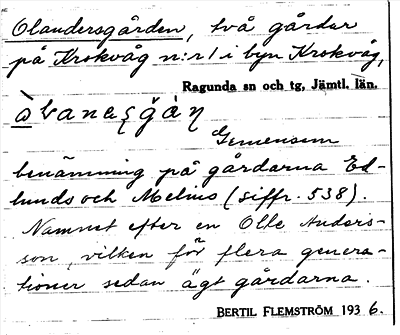 Olandersgården, två gårdar
på Krokvåg n:r 1 i byn Krokvåg,
Ragunda sn och tg, Jämtl. län.
Gemensam
benämning på gårdarna Ed-
lunds och Melins (siffr. 538).
Namnet efter en Olle Anders-
son, vilken för flera genera-
tioner sedan ägt gårdarna.
BERTIL FLEMSTRÖM 193 6.